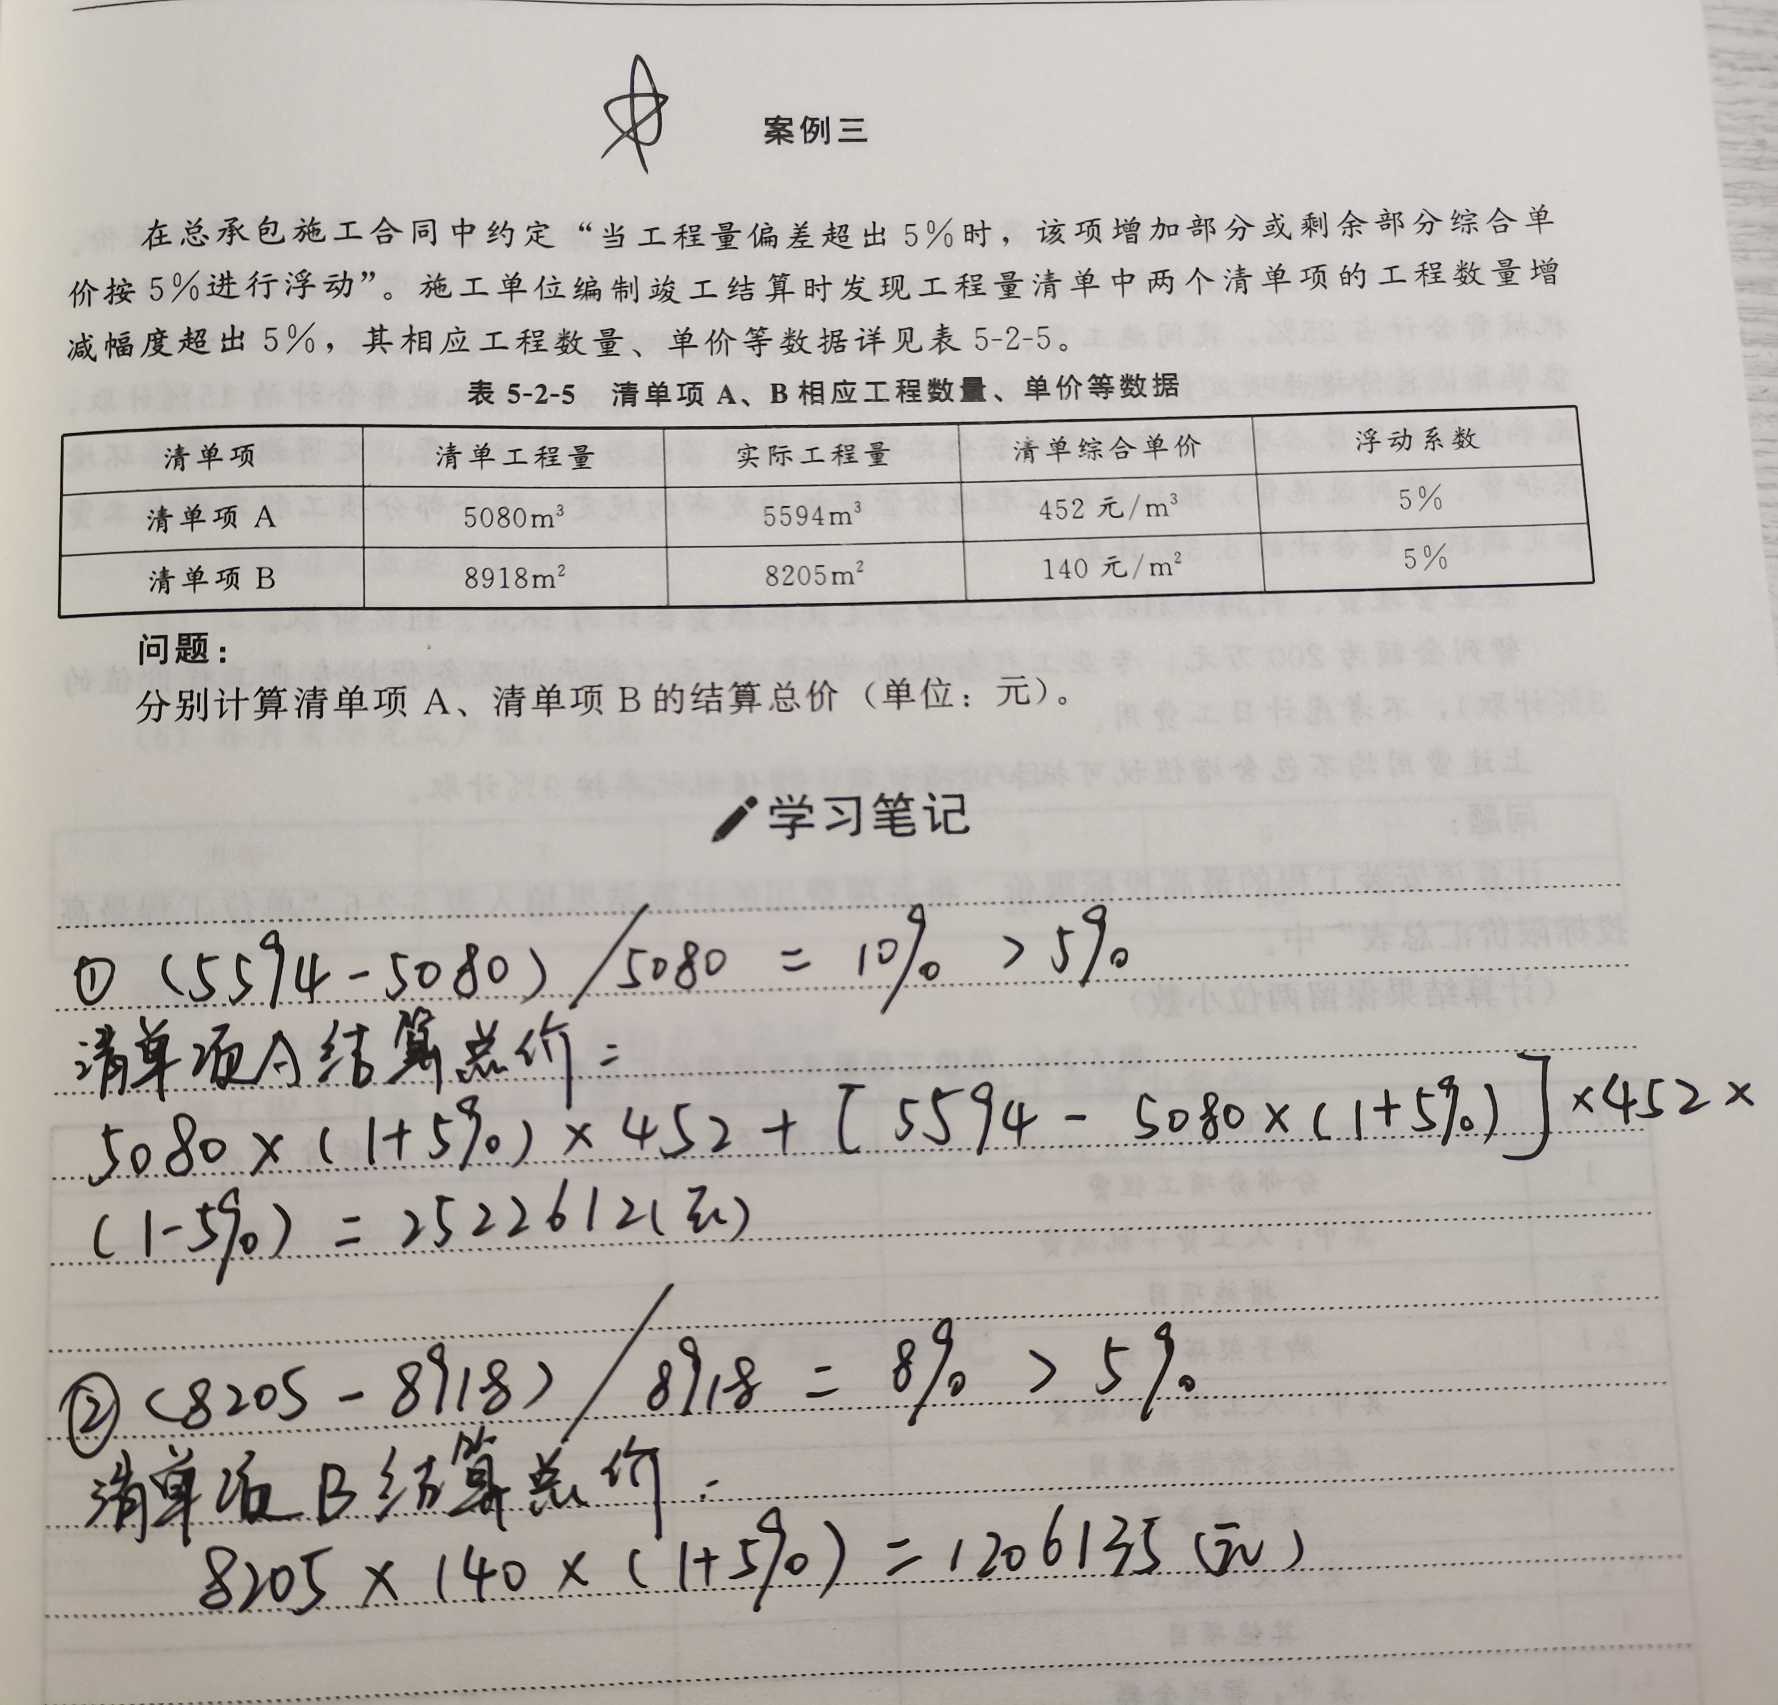 案例三
在总承包施工合同中约定“当工程量偏差超出5%时，该项增加部分或剩余部分综合单
价按5%进行浮动”。施工单位编制竣工结算时发现工程量清单中两个清单项的工程数量增
减幅度超出5%，其相应工程数量、单价等数据详见表5-2-5。
表5-2-5 清单项A、B相应工程数量、单价等数据
清单项 清单工程量 实际工程量 清单综合单价 浮动系数
清单项A 5080m³ 5594m³ 452元/m³ 5%
清单项B 8918m² 8205m² 140元/m² 5%
问题：
分别计算清单项A、清单项B的结算总价（单位：元）。
学习笔记
①（5594-5080）/5080 = 10% > 5%
清单项A结算总价=
5080×（1+5%）×452+[5594-5080×（1+5%）]×452×
（1-5%）=2522612（元）
②（8205-8918）/8918 = 8% > 5%
清单项B结算总价：
8205×140×（1+5%）=1206135（元）